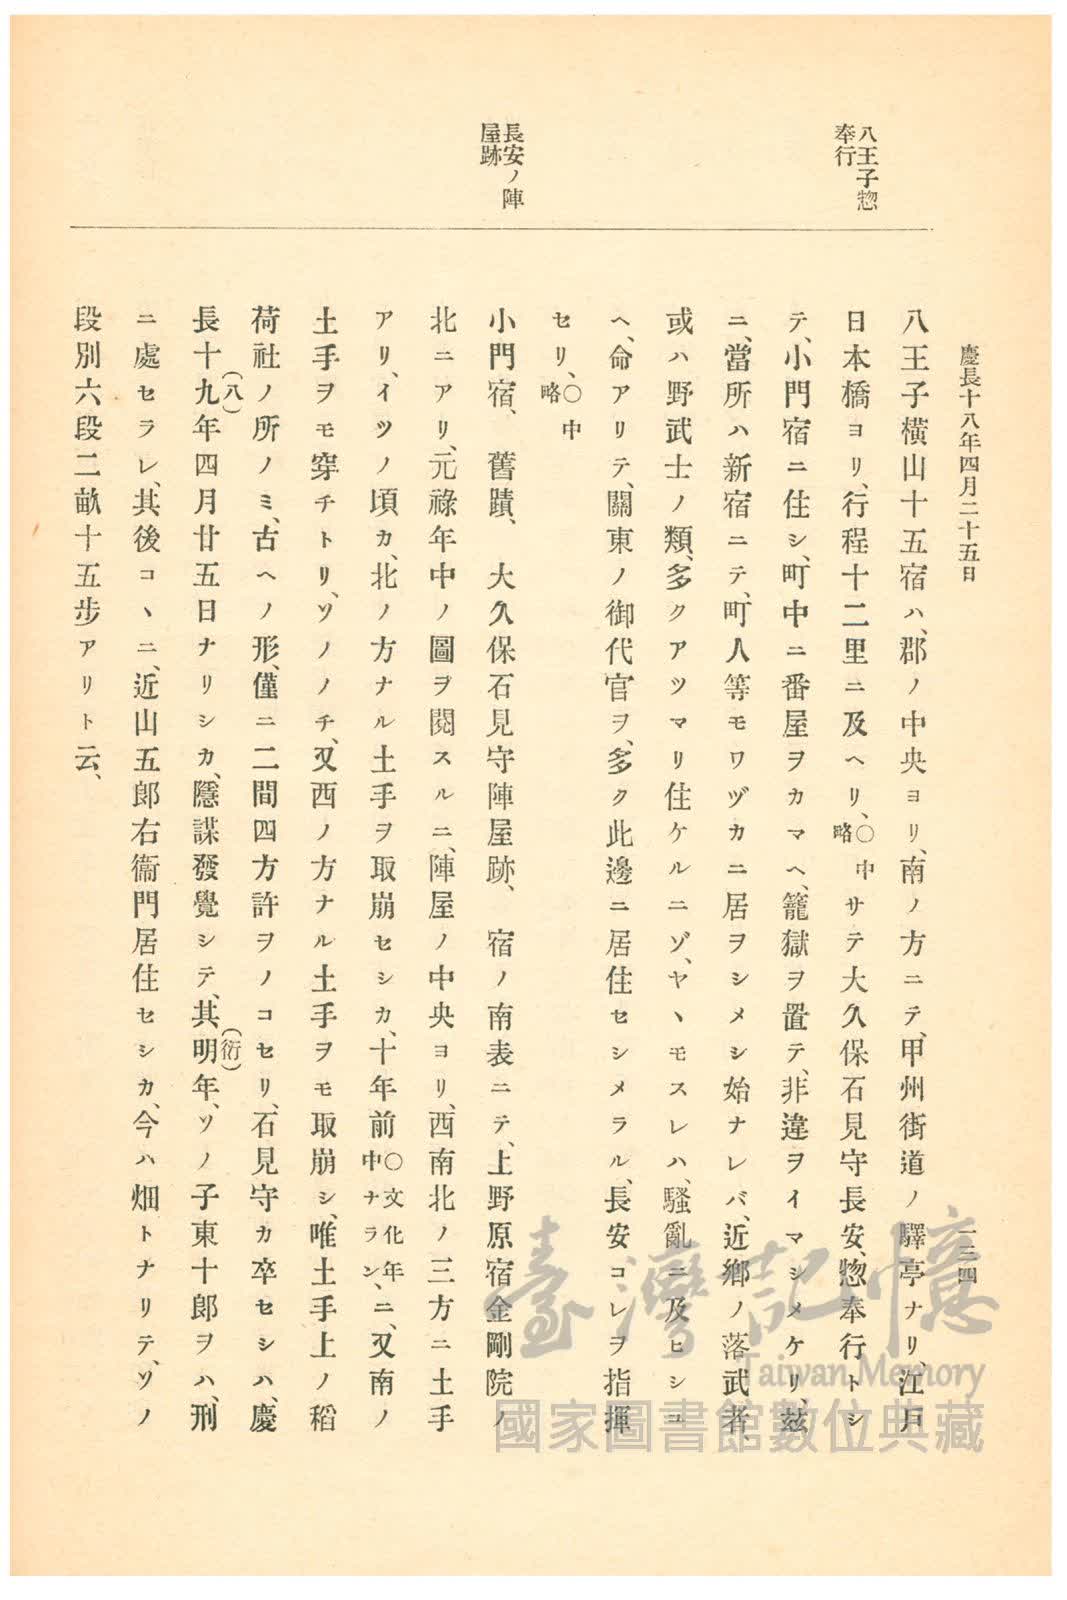 慶長十八年四月二十五日
一三四
八王子惣
奉行
長安ノ陣
屋跡
八王子橫山十五宿ハ、郡ノ中央ヨリ、南ノ方ニテ、甲州街道ノ驛亭ナリ、江戶
日本橋ヨリ、行程十二里ニ及ヘリ、○中略サテ大久保石見守長安、惣奉行トシ
テ、小門宿ニ住シ、町中ニ番屋ヲカマヘ、籠獄ヲ置テ、非違ヲイマシメケリ、玆
ニ、當所ハ新宿ニテ、町人等モワヅカニ居ヲシメシ始ナレバ、近鄉ノ落武者、
或ハ野武士ノ類、多クアツマリ住ケルニゾ、ヤヽモスレハ、騷亂ニ及ヒシコ
ヘ、命アリテ、關東ノ御代官ヲ、多ク此邊ニ居住セシメラル、長安コレヲ指揮
セリ、○中略
小門宿、舊蹟、大久保石見守陣屋跡、宿ノ南表ニテ、上野原宿金剛院ノ
北ニアリ、元祿年中ノ圖ヲ閱スルニ、陣屋ノ中央ヨリ、西南北ノ三方ニ土手
アリ、イツノ頃カ、北ノ方ナル土手ヲ取崩セシカ、十年前○文化年中ナラン、ニ、又南ノ
土手ヲモ穿チトリ、ソノノチ、又西ノ方ナル土手ヲモ取崩シ、唯土手上ノ稻
荷社ノ所ノミ、古ヘノ形、僅ニ二間四方許ヲノコセリ、石見守カ卒セシハ、慶
長十九(八)年四月廿五日ナリシカ、隱謀發覺シテ、其明(衍)年、ソノ子東十郎ヲハ、刑
ニ處セラレ、其後コヽニ、近山五郎右衞門居住セシカ、今ハ畑トナリテ、ソノ
段別六段二畝十五步アリト云、
臺灣記憶
Taiwan Memory
國家圖書館數位典藏